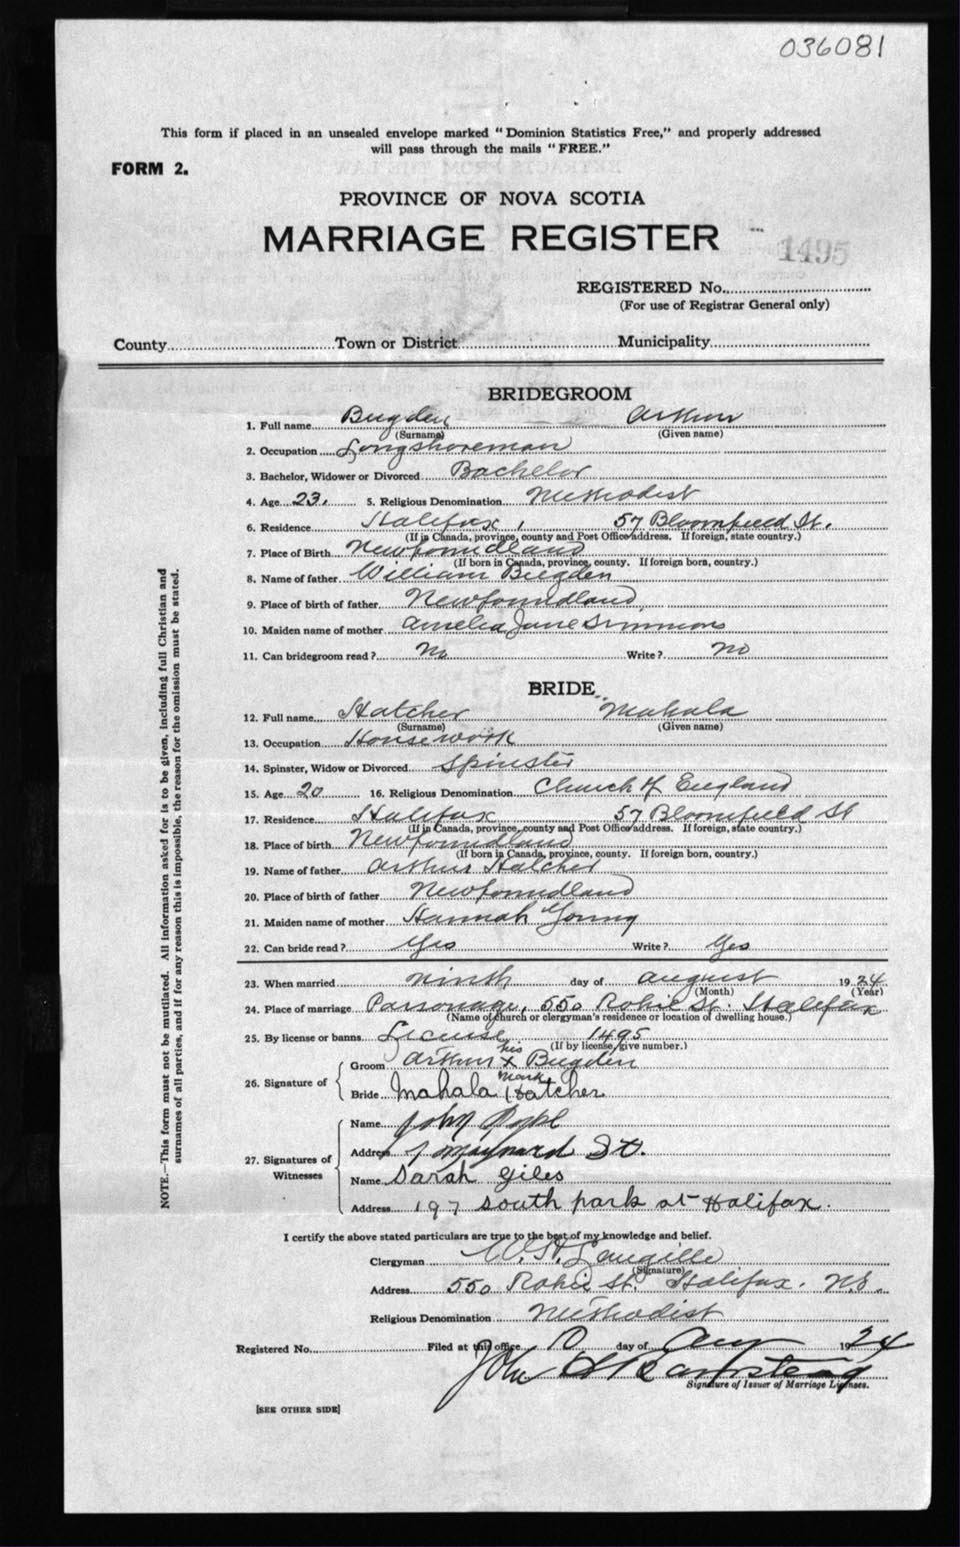 036081
This form if placed in an unsealed envelope marked "Dominion Statistics Free," and properly addressed
will pass through the mails "FREE."
FORM 2.
PROVINCE OF NOVA SCOTIA
MARRIAGE REGISTER
1495
REGISTERED No.
(For use of Registrar General only)
County Town or District Municipality
BRIDEGROOM
1. Full name Bugden Arthur
(Surname) (Given name)
2. Occupation Longshoreman
3. Bachelor, Widower or Divorced Bachelor
4. Age 23. 5. Religious Denomination Methodist
6. Residence Halifax, 57 Bloomfield St.
(If in Canada, province, county and Post Office address. If foreign, state country.)
7. Place of Birth Newfoundland
(If born in Canada, province, county. If foreign born, country.)
8. Name of father William Bugden
9. Place of birth of father Newfoundland
10. Maiden name of mother Amelia Jane Simmons
11. Can bridegroom read? No Write? No
BRIDE
12. Full name Hatcher Mahala
(Surname) (Given name)
13. Occupation Housework
14. Spinster, Widow or Divorced Spinster
15. Age 20 16. Religious Denomination Church of England
17. Residence Halifax 57 Bloomfield St
(If in Canada, province, county and Post Office address. If foreign, state country.)
18. Place of birth Newfoundland
(If born in Canada, province, county. If foreign born, country.)
19. Name of father Arthur Hatcher
20. Place of birth of father Newfoundland
21. Maiden name of mother Hannah Young
22. Can bride read? Yes Write? Yes
23. When married ninth day of August 1924
(Month) (Year)
24. Place of marriage Parsonage, 550 Robie St. Halifax
(Name of church or clergyman's residence or location of dwelling house.)
25. By license or banns License 1495
(If by license, give number.)
26. Signature of
Groom Arthur his x mark Bugden
Bride Mahala Hatcher
27. Signatures of Witnesses
Name John
Address Maynard St.
Name Sarah Giles
Address 197 South park st Halifax.
I certify the above stated particulars are true to the best of my knowledge and belief.
Clergyman W. H. Langille
(Signature)
Address 550 Robie St. Halifax. N.S.
Religious Denomination Methodist
Registered No. Filed at this office day of Aug 1924
John
Signature of Issuer of Marriage Licenses.
[SEE OTHER SIDE]
NOTE.—This form must not be mutilated. All information asked for is to be given, including full Christian and
surnames of all parties, and if for any reason this is impossible, the reason for the omission must be stated.